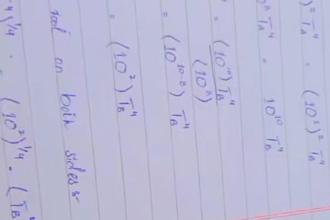 )² T⁴ = (10⁵)² T_B⁴
T⁴ = 10¹⁰ T_B⁴
= (10¹⁰) T_B⁴
(10⁸)
= (10¹⁰⁻⁸) T_B⁴
= (10²) T_B⁴
root on both sides
)¹/⁴ = (10²)¹/⁴ = (T_B⁴